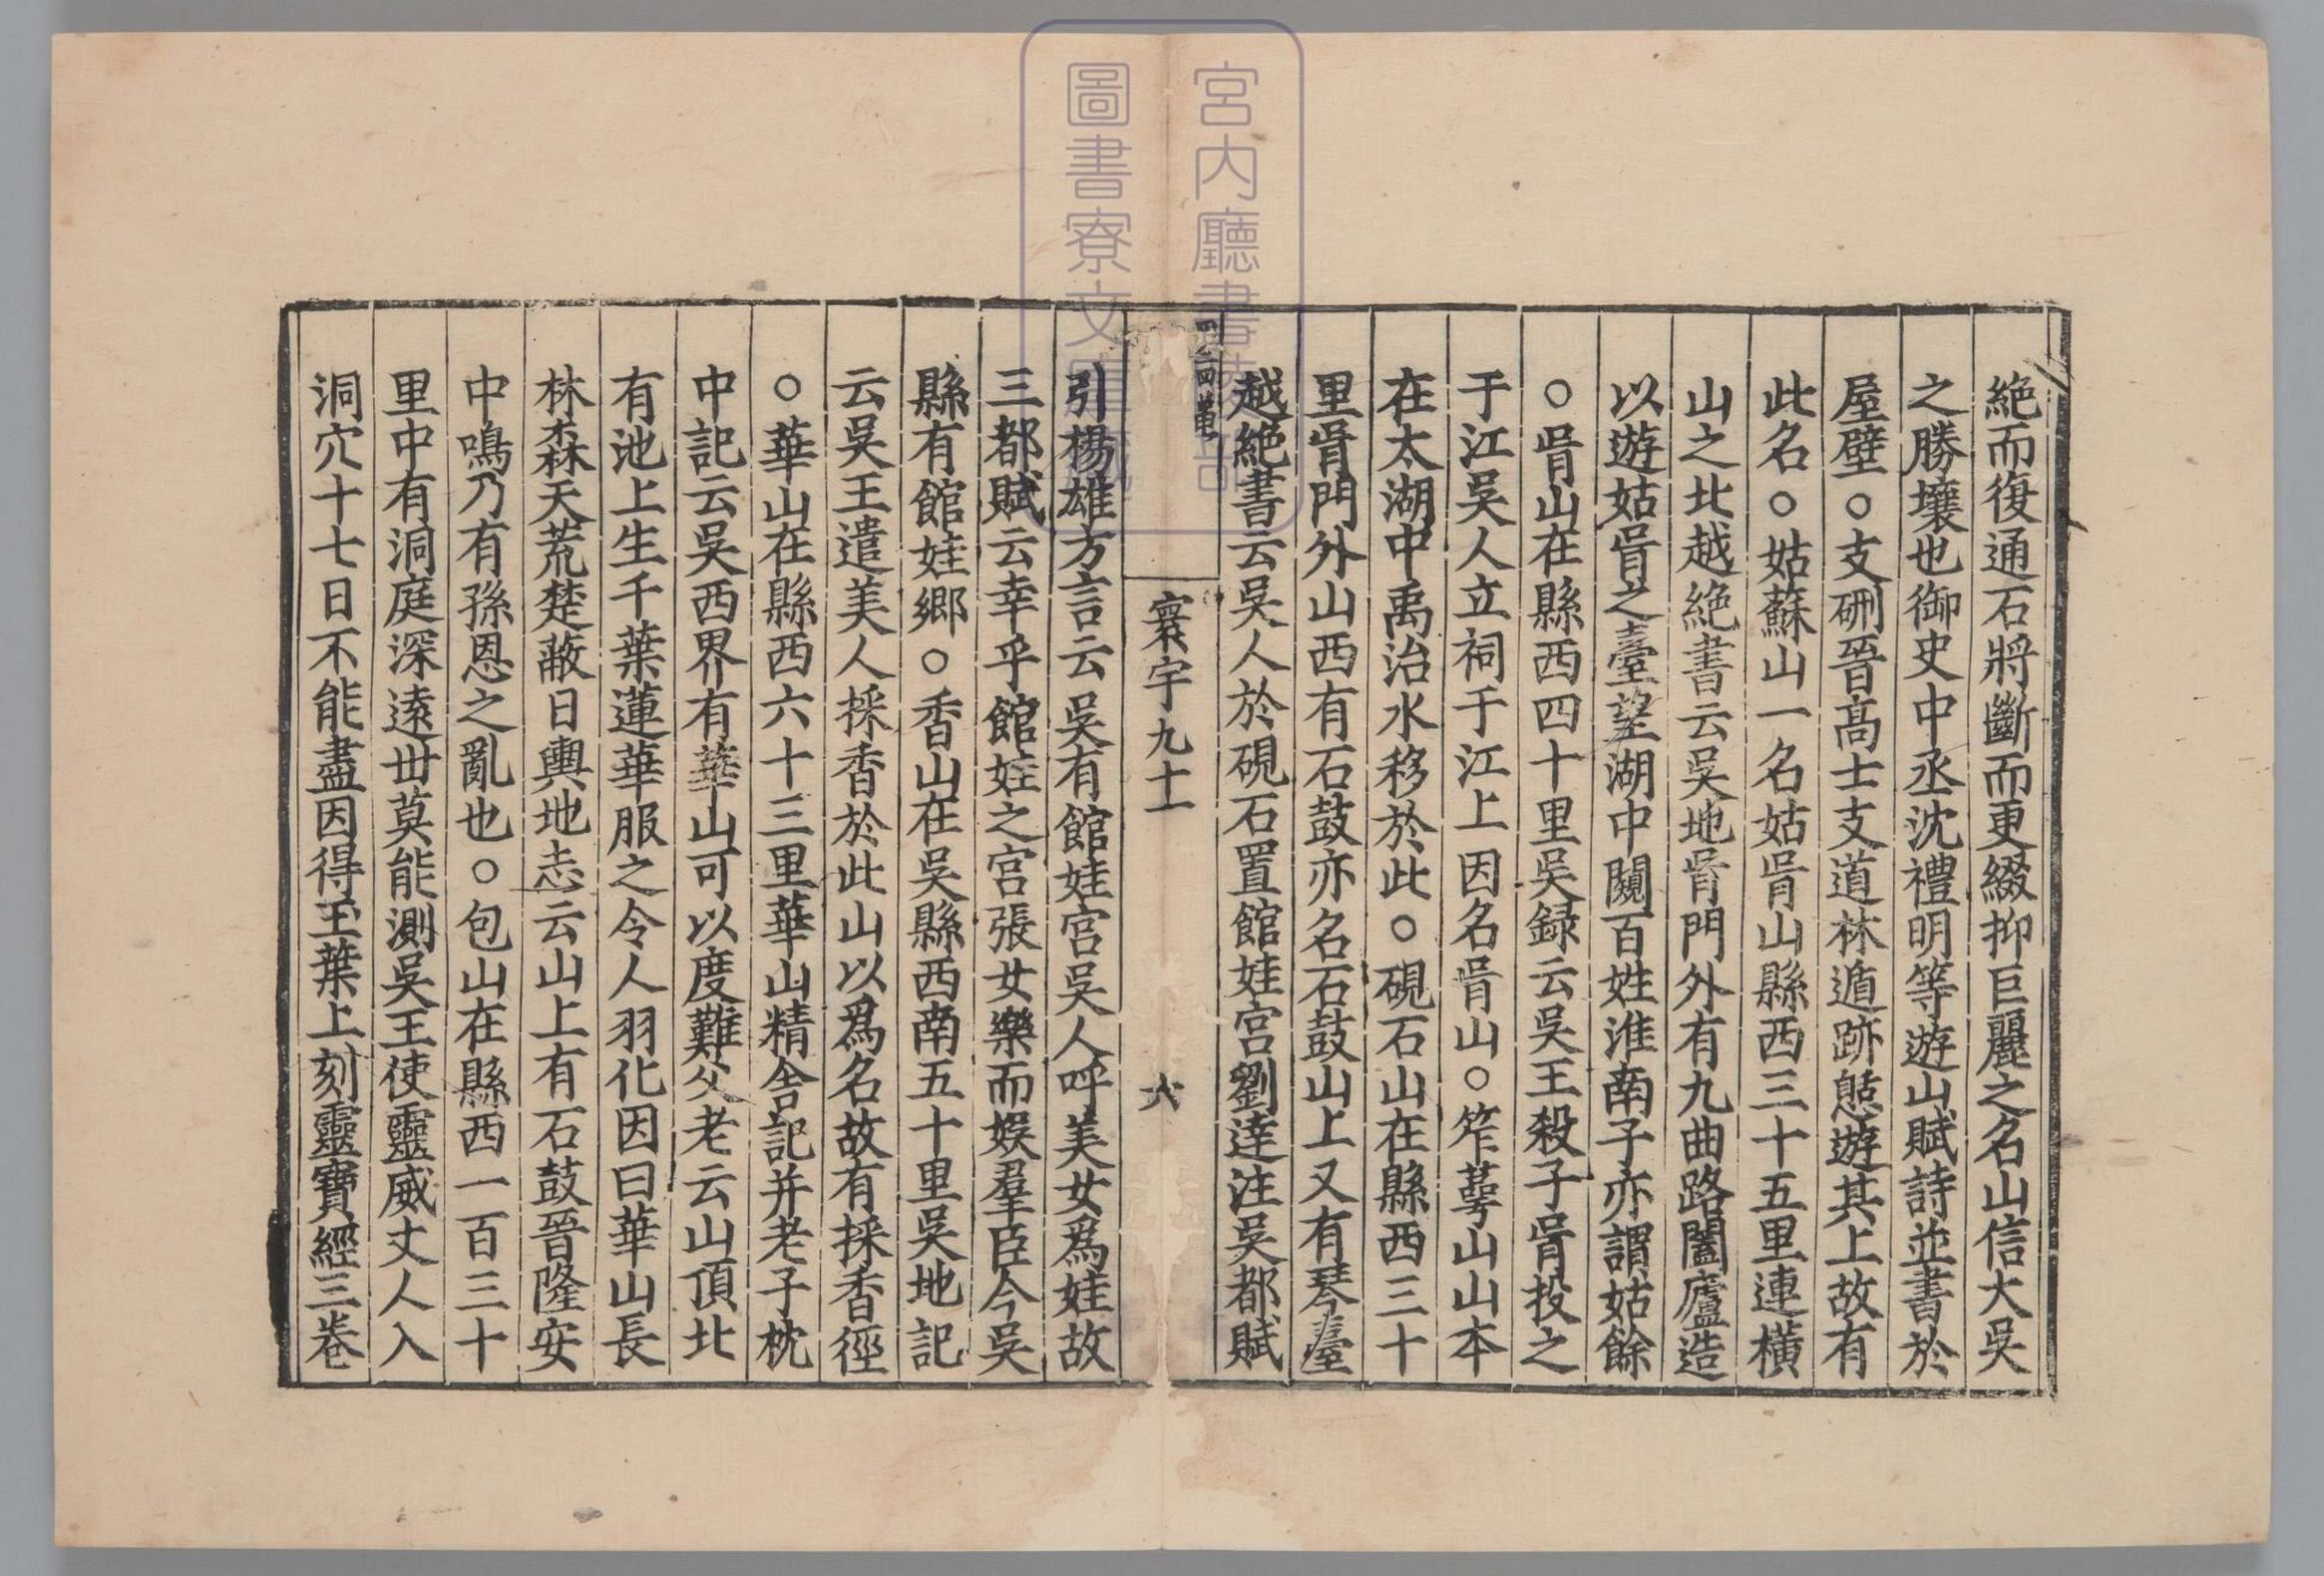 絶而復通石將斷而更綴抑巨麗之名山信大吳
之勝壤也御史中丞沈禮明等遊山賦詩並書於
屋壁○支硎晉高士支道林遁跡憇遊其上故有
此名○姑蘇山一名姑胥山縣西三十五里連橫
山之北越絶書云吳地胥門外有九曲路闔廬造
以遊姑胥之臺望湖中闚百姓淮南子亦謂姑餘
○胥山在縣西四十里吳録云吳王殺子胥投之
于江吳人立祠于江上因名胥山○笮萼山山本
在太湖中禹治水移於此○硯石山在縣西三十
里胥門外山西有石鼓亦名石鼓山上又有琴臺
越絶書云吳人於硯石置館娃宮劉逵注吳都賦
寰宇九十一
六
引楊雄方言云吳有館娃宮吳人呼美女爲娃故
三都賦云幸乎館娃之宮張女樂而娛羣臣今吳
縣有館娃郷○香山在吳縣西南五十里吳地記
云吳王遣美人採香於此山以爲名故有採香徑
○華山在縣西六十三里華山精舍記并老子枕
中記云吳西界有華山可以度難父老云山頂北
有池上生千葉蓮華服之令人羽化因曰華山長
林森天荒楚蔽日輿地志云山上有石鼓晉隆安
中鳴乃有孫恩之亂也○包山在縣西一百三十
里中有洞庭深遠丗莫能測吳王使靈威丈人入
洞穴十七日不能盡因得玉葉上刻靈寶經三卷
宮内廳書陵部
圖書寮文庫藏